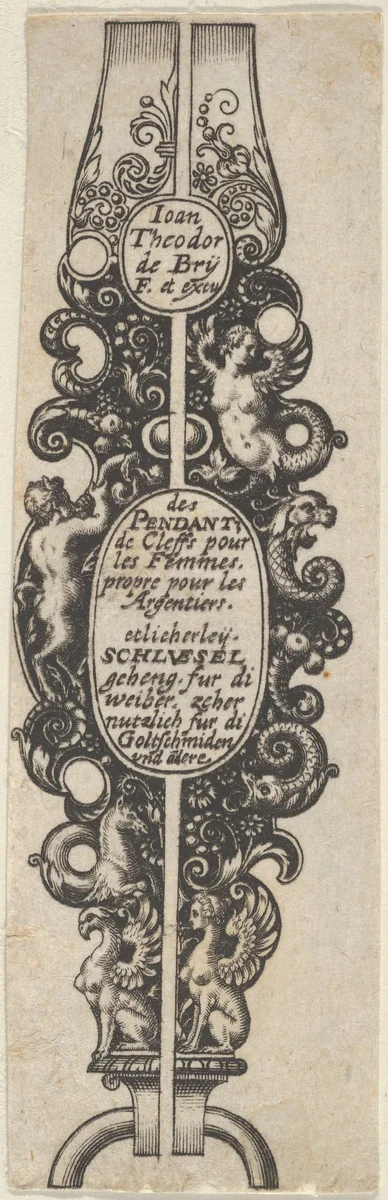 Ioan
Theodor
de Brÿ
F. et excu
des
PENDANTZ
de Cleffs pour
les Femmes,
propre pour les
Argentiers.
etlicherleÿ.
SCHLVESEL
geheng fur di
weiber, zcher
nutzlich fur di
Goltschmiden
vnd ādere